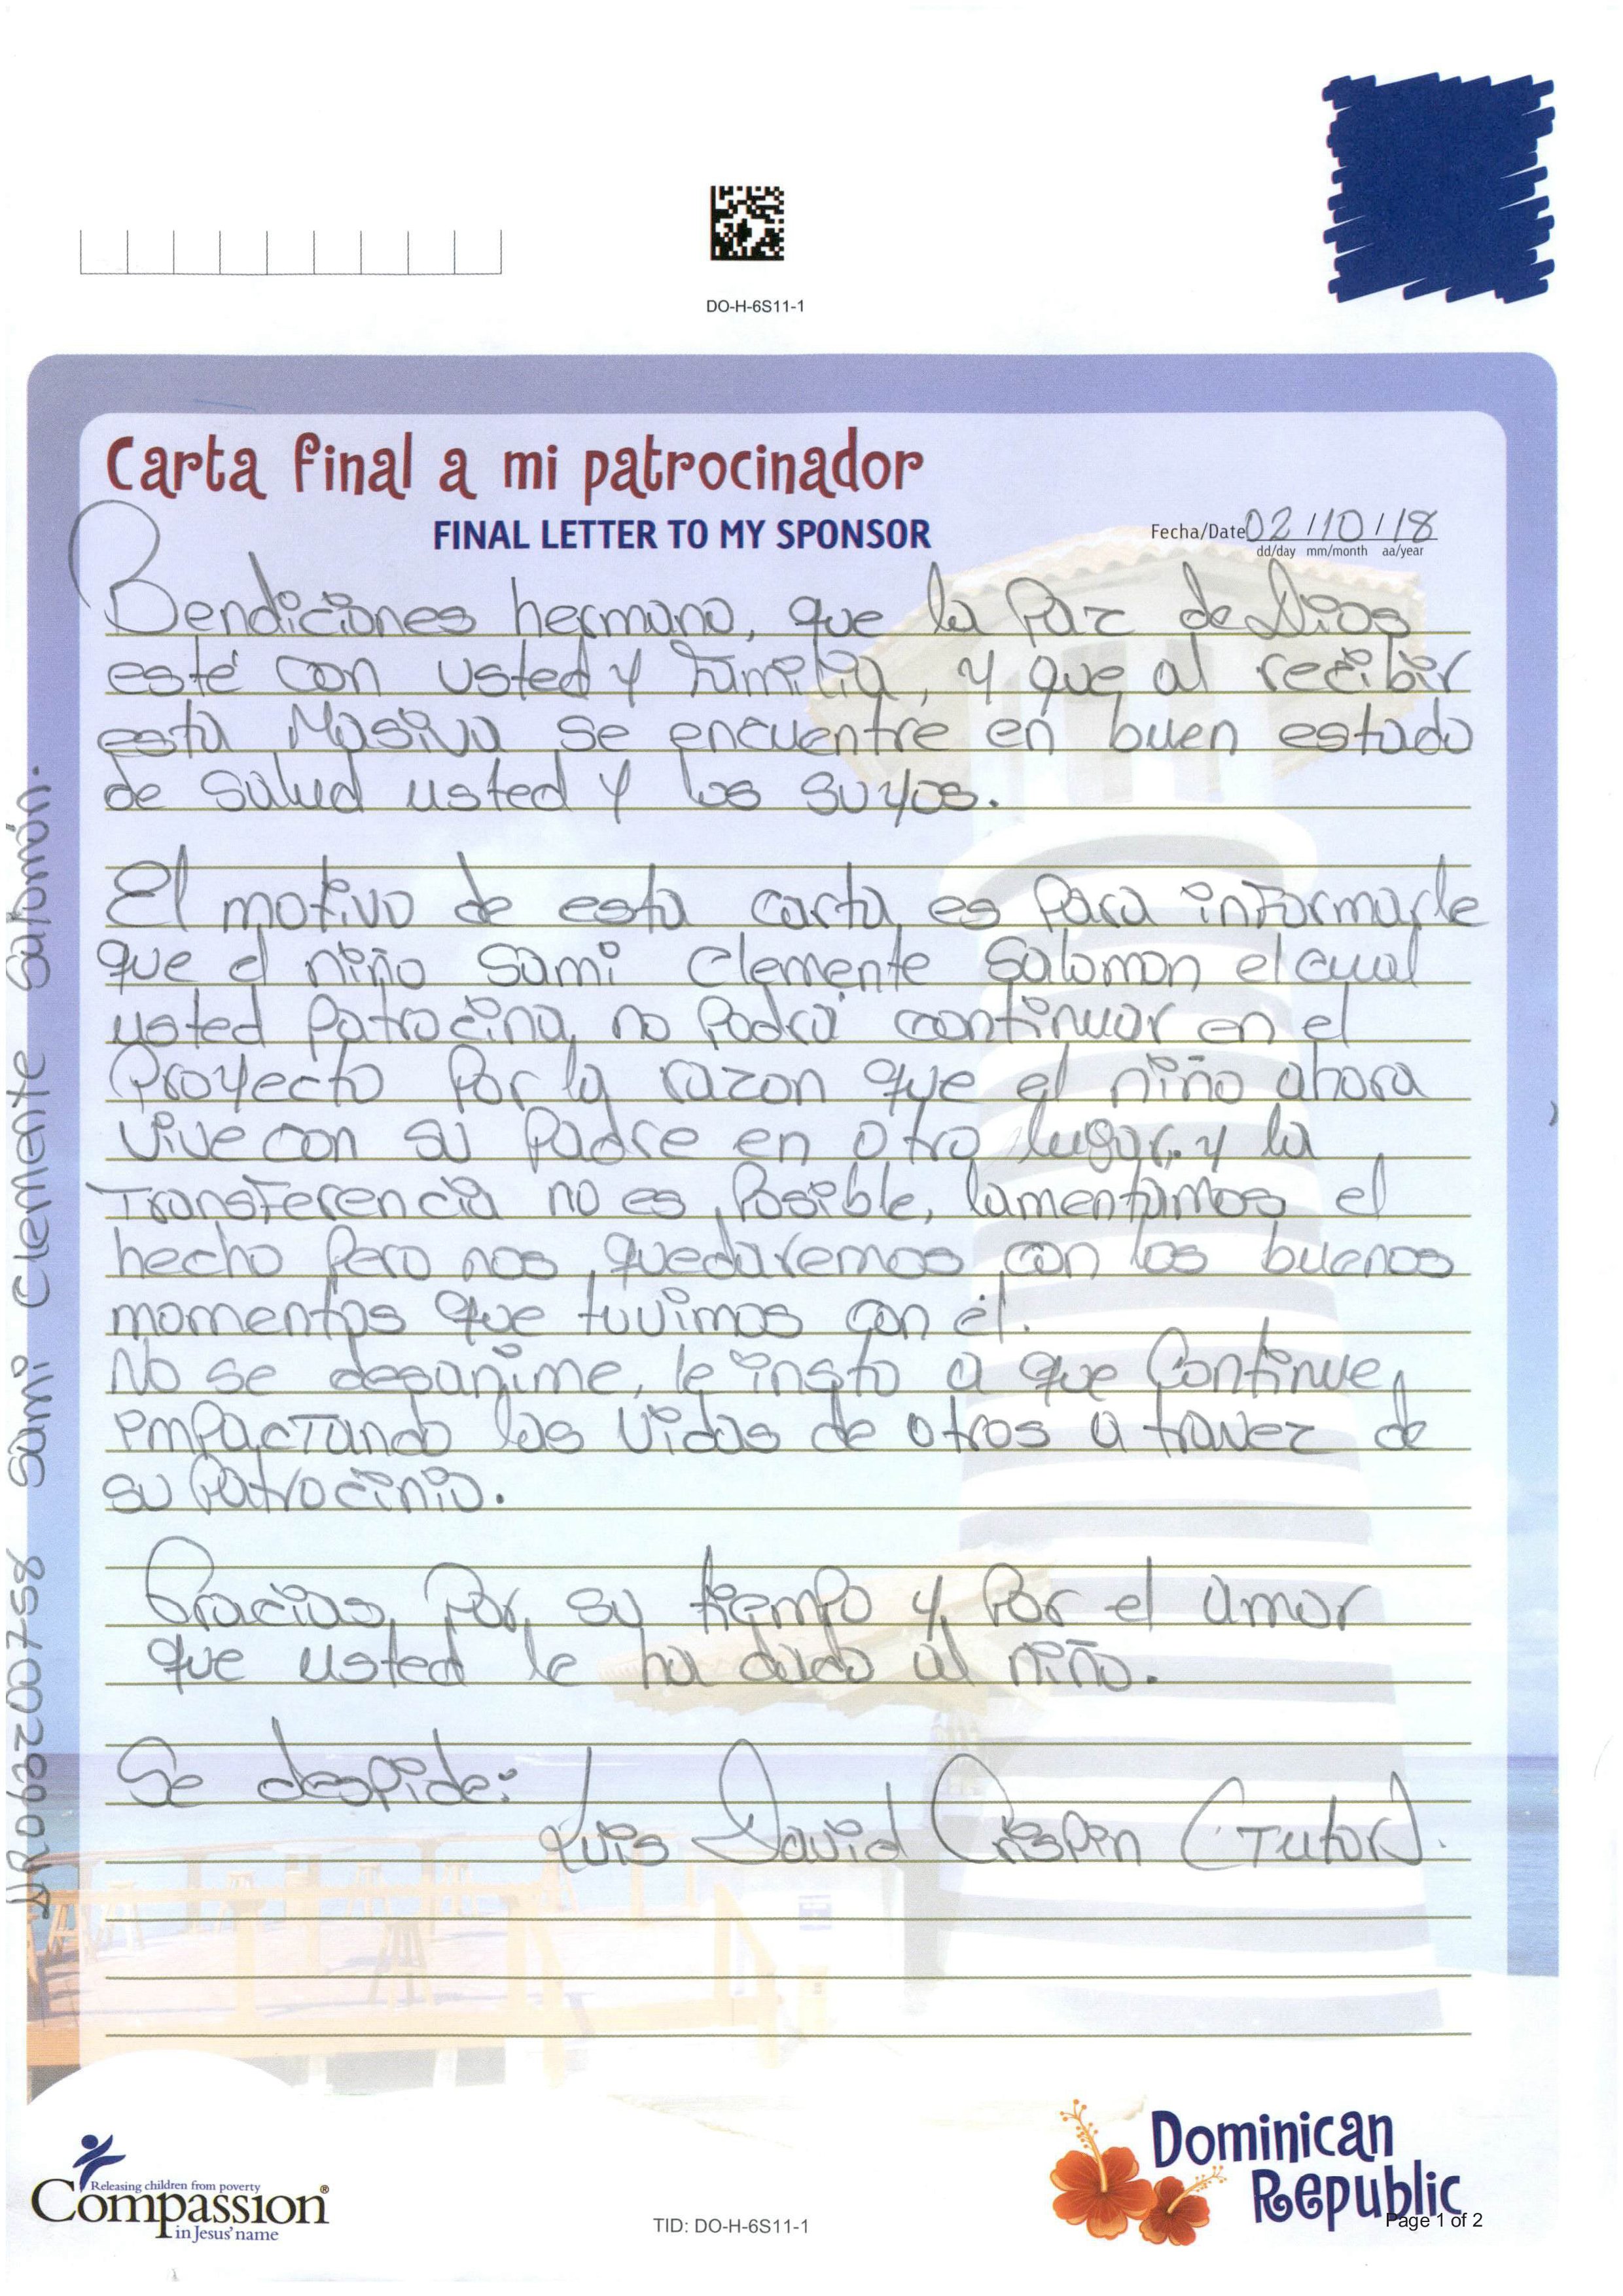 DO-H-6S11-1
Carta final a mi patrocinador
FINAL LETTER TO MY SPONSOR
Fecha/Date 02/10/18
dd/day mm/month aa/year
Bendiciones hermano, que la Paz de Dios
esté con usted y familia, y que al recibir
esta Masiva se encuentre en buen estado
de Salud usted y los suyos.
El motivo de esta carta es Para informarle
que el niño Sami Clemente Salomon el cual
usted Patrocina no Podrá continuar en el
Proyecto Por la razon que el niño ahora
vive con su Padre en otro lugar y la
Transferencia no es Posible, lamentamos el
hecho Pero nos quedaremos con los buenos
momentos que tuvimos con él.
No se desanime, le insto a que Continue
impactando las vidas de otros a travez de
su Patrocinio.
Gracias Por su tiempo y Por el amor
que usted le ha dado al niño.
Se despide:
Luis David Crispin (Tutor).
DR0620200758 Sami Clemente Salomón.
Releasing children from poverty
Compassion®
in Jesus' name
TID: DO-H-6S11-1
Dominican
Republic
Page 1 of 2